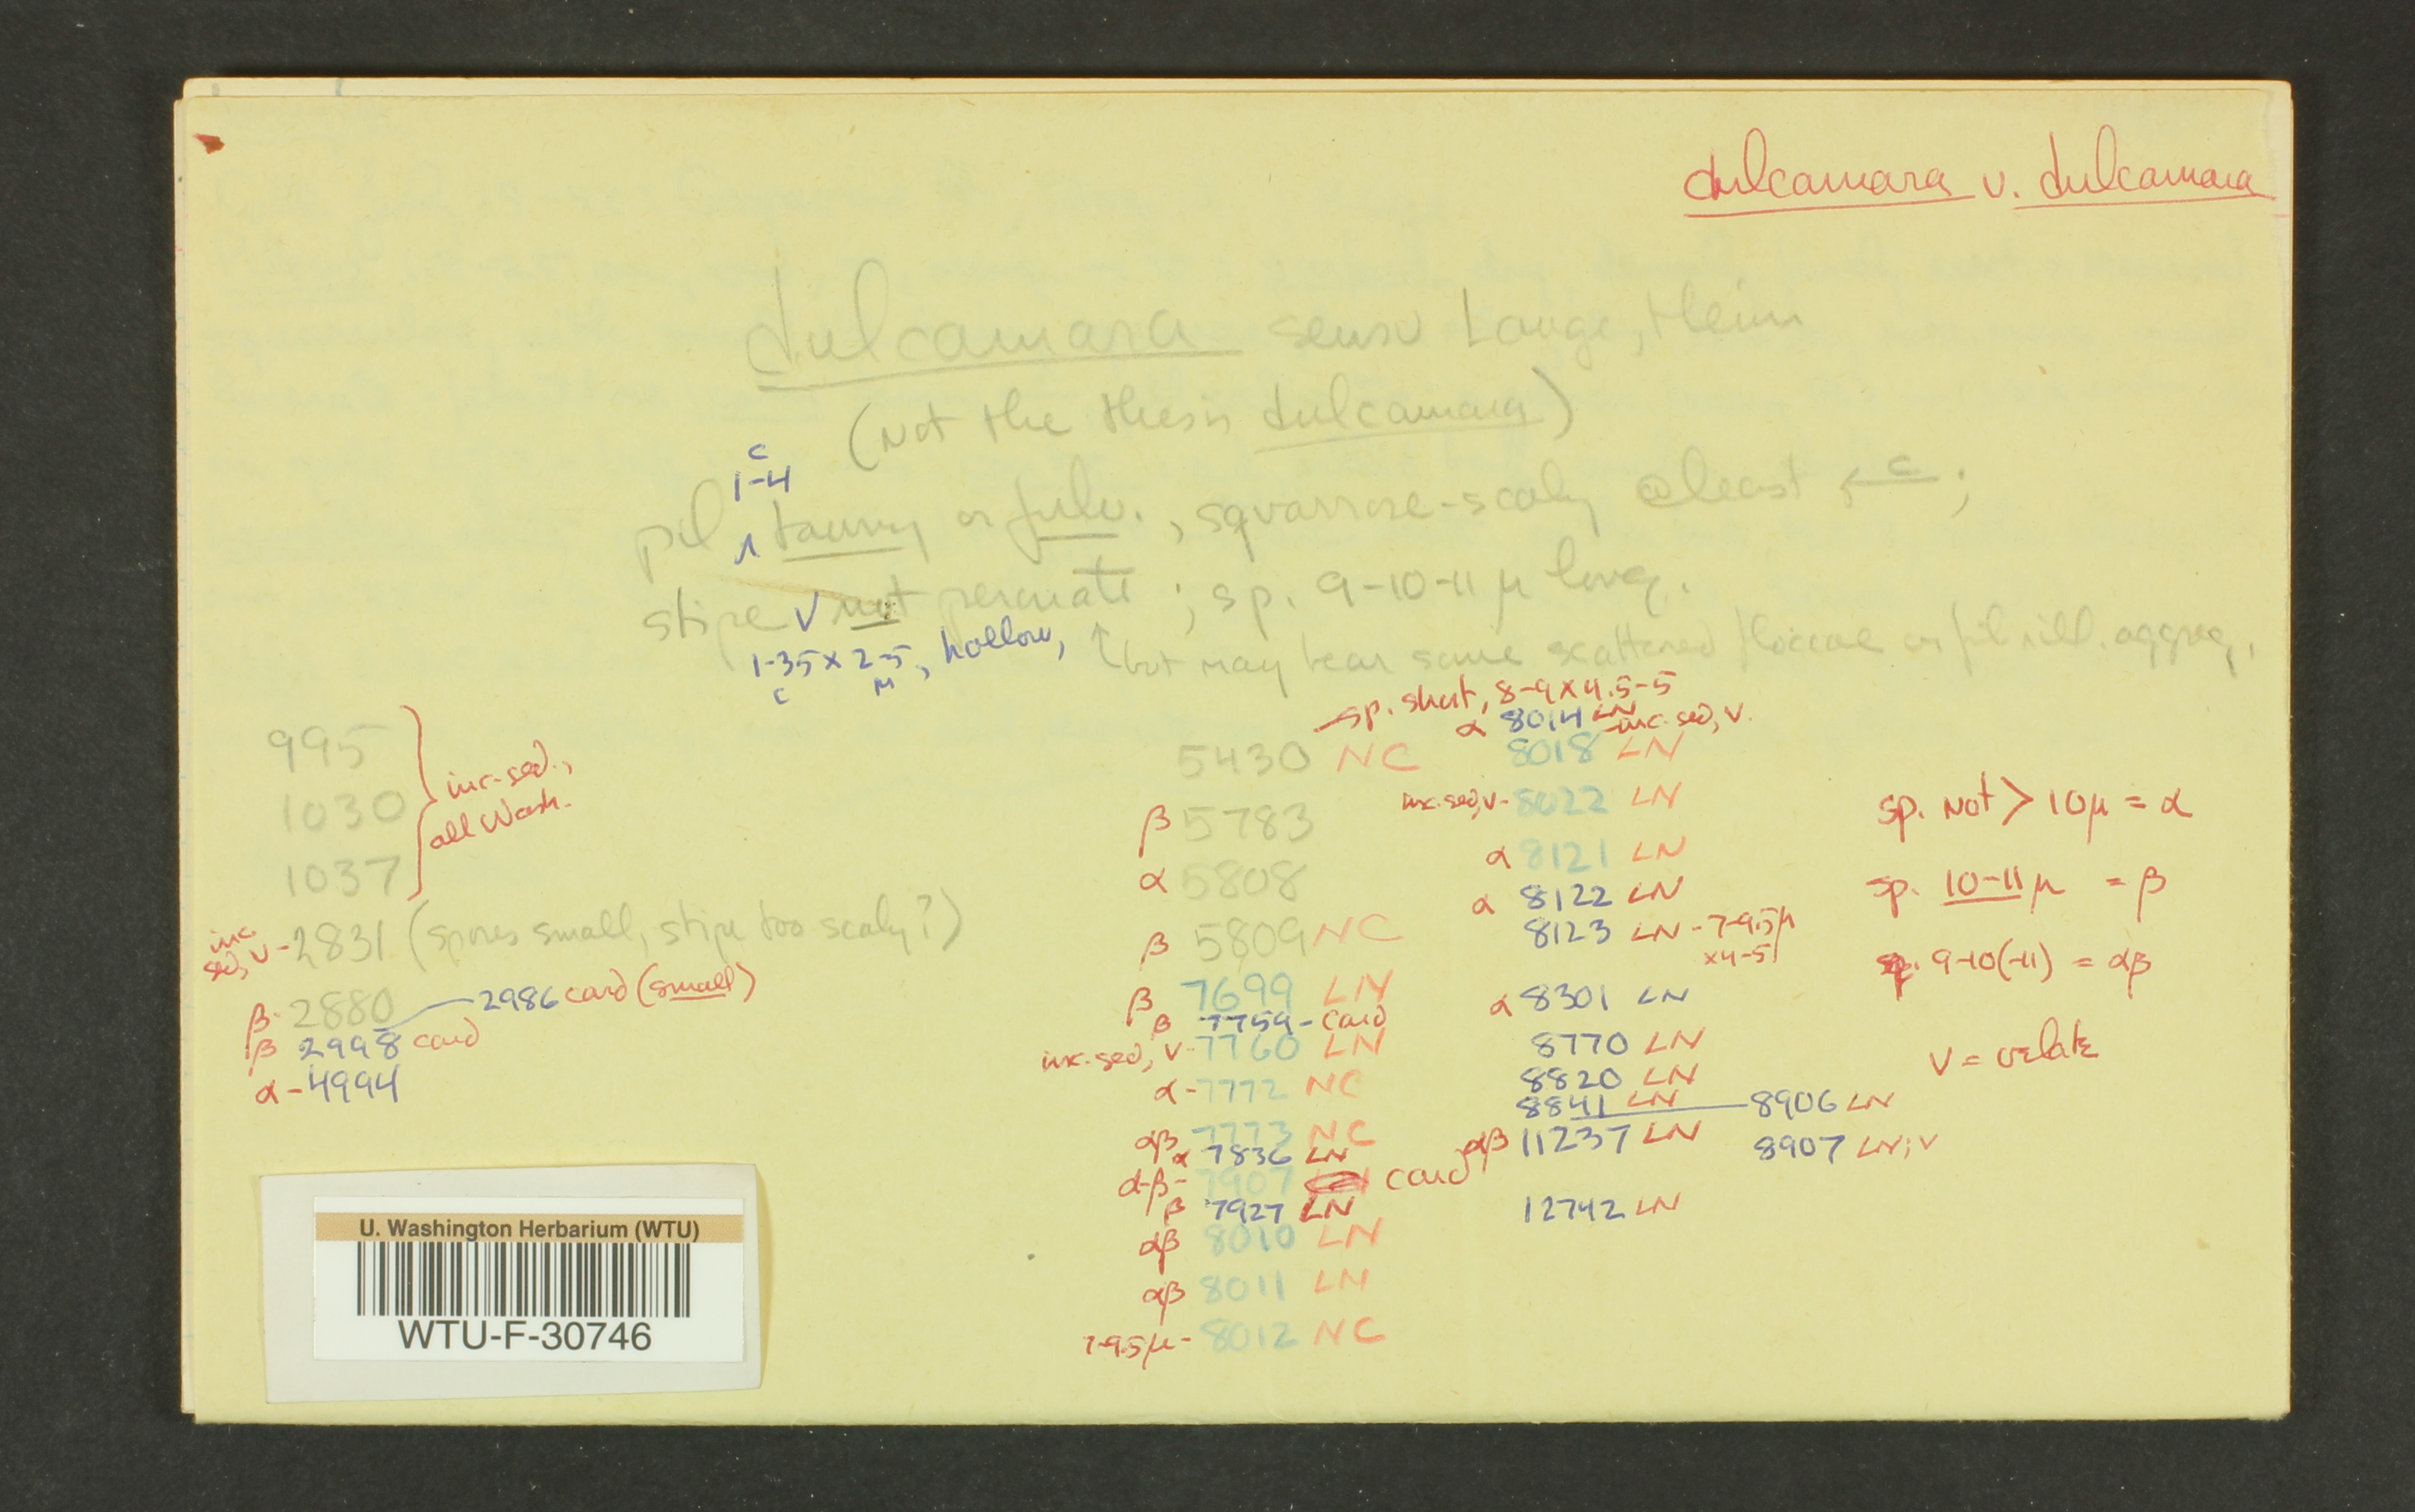 dulcamara v. dulcamara
dulcamara sensu Lange, Heim
(Not the thesis dulcamara)
c
1-4
pil ʌ tawny or fulv., squarrose-scaly @least ← c ;
stipe v not peronate ; sp. 9-10-11 µ long.
1-35 x 2-5, hollow, ↑ but may bear some scattered floccae or fibrill. aggreg.
c M
995
1030
1037
} inc. sed., all Wash.
inc. sed, v - 2831 (spores small, stipe too scaly?)
β - 2880 — 2986 card (small)
β 2998 card
α - 4994
sp. short, 8-9 x 4.5-5
5430 NC
β 5783
α 5808
β 5809 NC
β 7699 LN
β 7759 - card
inc. sed, v - 7760 LN
α - 7772 NC
αβ 7773 NC
α 7836 LN
α-β - 7907 card
β 7927 LN
αβ 8010 LN
αβ 8011 LN
7-9.5µ - 8012 NC
α 8014 LN
8018 LN - inc. sed, v.
inc. sed, v - 8022 LN
α 8121 LN
α 8122 LN
8123 LN - 7-9.5µ x 4-5
α 8301 LN
8770 LN
8820 LN
8841 LN — 8906 LN
αβ 11237 LN
8907 LN; v
12742 LN
sp. Not > 10µ = α
sp. 10-11 µ = β
sp. 9-10(-11) = αβ
v = velate
U. Washington Herbarium (WTU)
WTU-F-30746